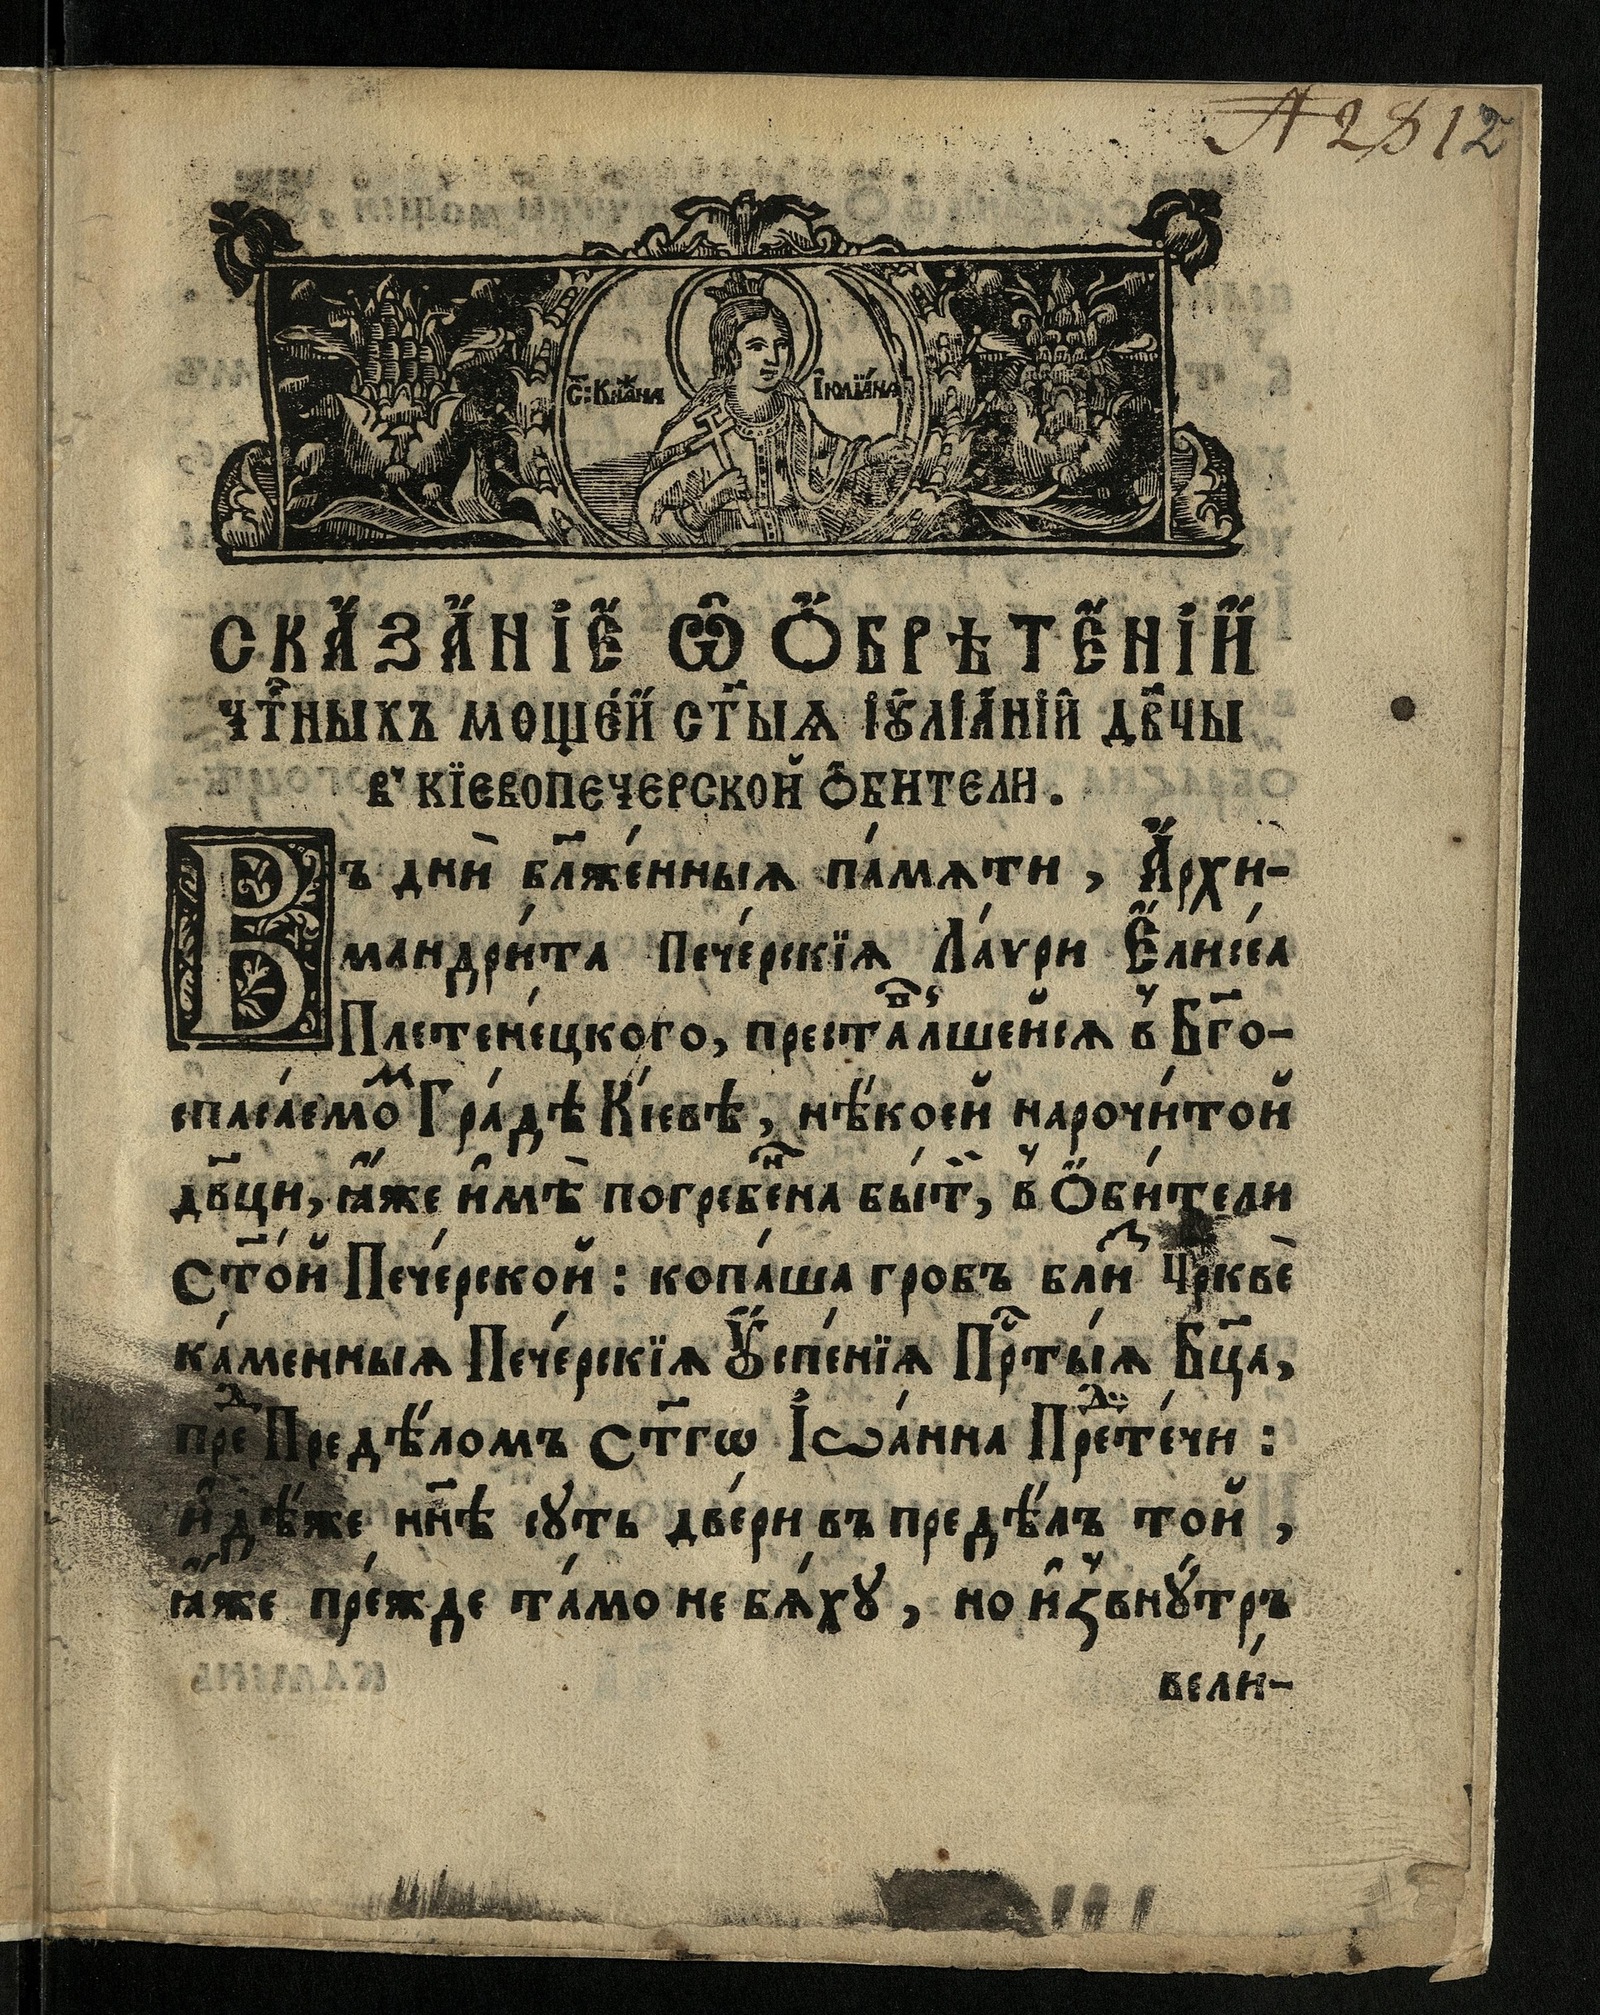 А 2812
С҃: Кнѧ́жна Іюлїа́на
СКА́ЗА́НІЕ Ѡ҆ Ѻ҆БРѢТЕ́НІЙ
чтⷭ҇ныхъ моще́й ст҃ыѧ І҆ꙋліа́ній дв҃чы
в̾ Кїевопечерской ѻ҆бители.
Въ днѝ бл҃же́нныѧ па́мѧти, А҆рхи-
мандри́та Пече́рскїѧ Ла́ѵри Є҆лисе́а
Плетене́цкого, преста́вⷡ҇лшейсѧ в̾ Бг҃о-
спаса́емоⷨ Гра́дѣ Кі́евѣ, нѣ́коей нарочи́той
дв҃ци, ꙗ҆́же и҆мѣ̀ погребе́ⷩ҇на бы́т҃, в̾ Ѻ҆би́тели
Ст҃о́й Пече́рской: копа́ша гробъ блиⷥ Чр҃квѐ
ка́менныѧ Пече́рскїѧ Оу҆спе́нїѧ Прⷭ҇ты́ѧ Бц҃а,
преⷣ Предѣ́ломъ Ст҃гѡ І҆ѡа́нна Преⷣте́чи:
и҆дѣ́же нн҃ѣ сꙋть две́ри въ предѣ́лъ той,
ꙗ҆́же пре́жде та́мо не бѧ́хꙋ, но и҆з̾внꙋ́трь
вели́-